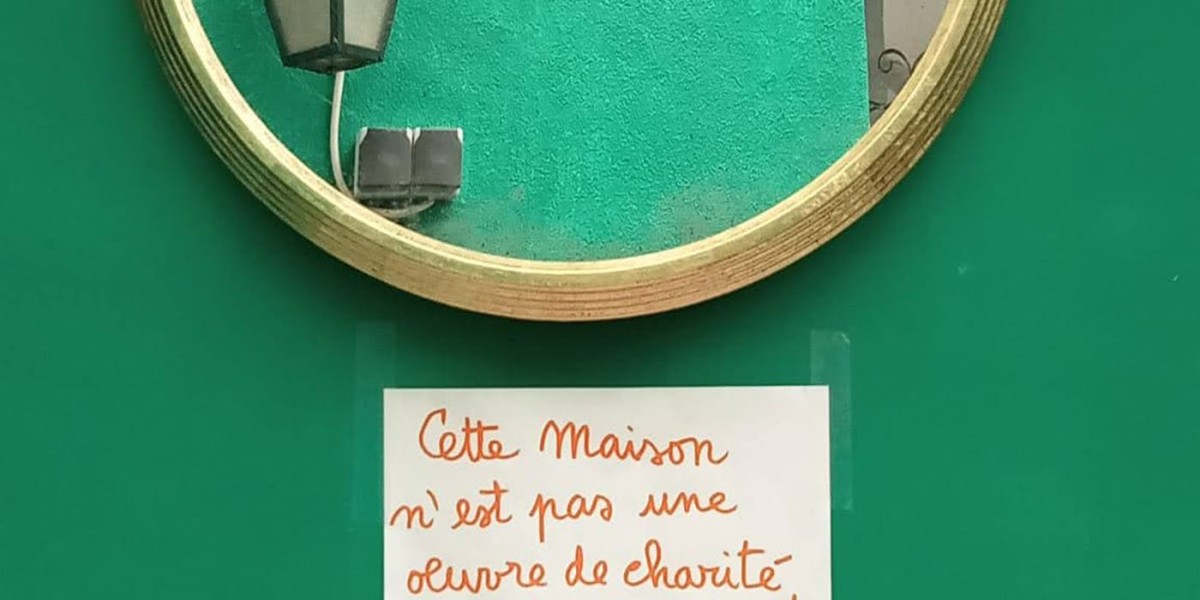 Cette Maison
n'est pas une
oeuvre de charité